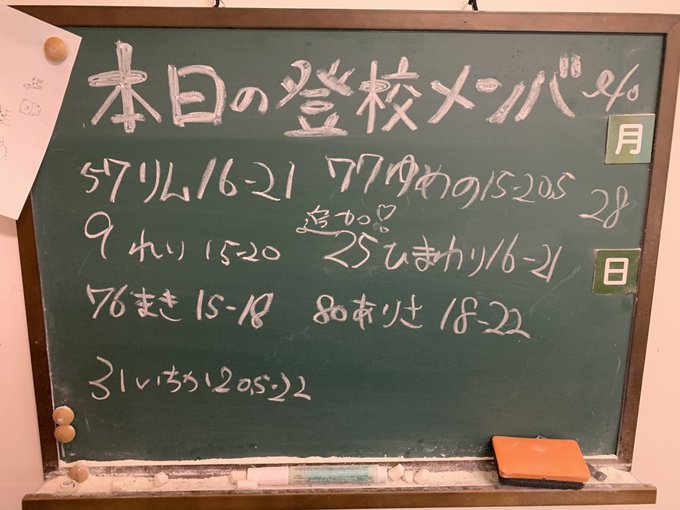 本日の登校メンバー
月
57りん16-21 77ゆめの15-20.5
28
追加♡
9れり 15-20 25ひまわり16-21
日
76まき15-18 80ありさ 18-22
31いちか20.5-22